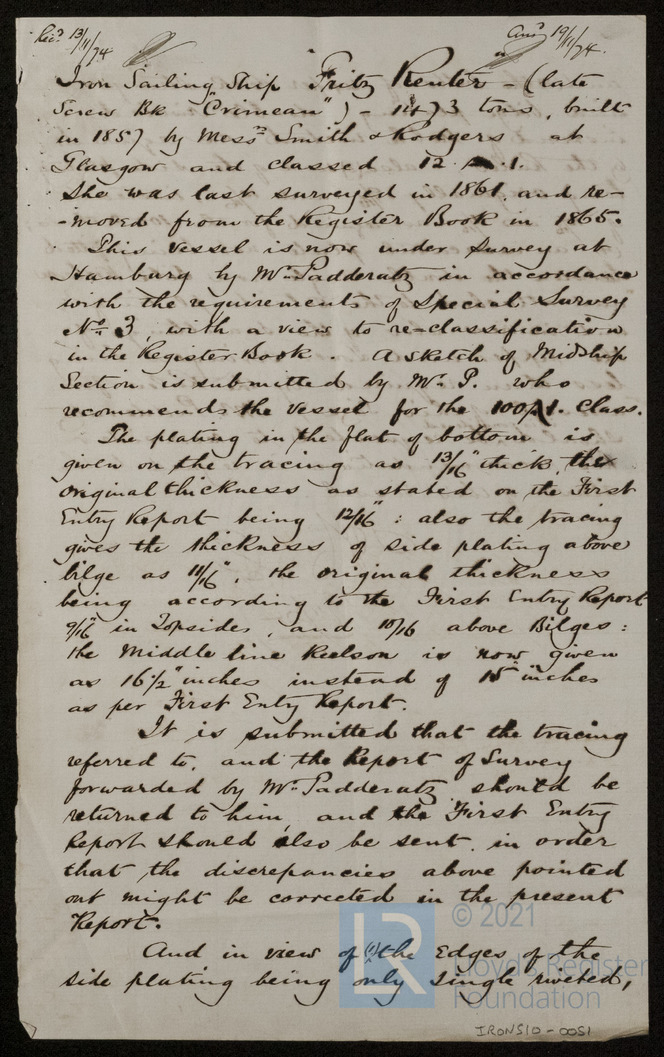 Rec? 13/11/74
Ans? 19/11/74.
Iron Sailing Ship Fritz Reuter - (late
Screw Bk "Crimean") - 1473 tons, built
in 1857 by Messrs Smith & Rodgers at
Glasgow and classed 12.A.1.
She was last surveyed in 1861, and re-
-moved from the Register Book in 1865.
This vessel is now under survey at
Hamburg by Mr. Padderatz in accordance
with the requirements of Special Survey
No. 3 with a view to re-classification
in the Register Book. A sketch of Midship
Section is submitted by Mr. P. who
recommends the vessel for the 100A1. Class.
The plating in the flat of bottom is
given on the tracing as 13/16" thick, the
original thickness as stated on the First
Entry Report being 12/16": also the tracing
gives the thickness of side plating above
bilge as 11/16", the original thickness
being according to the First Entry Report
9/16" in Topsides, and 10/16 above Bilges:
the Middle line Keelson is now given
as 16 1/2" inches instead of 15" inches
as per First Entry Report.
It is submitted that the tracing
referred to, and the Report of Survey
forwarded by Mr. Padderatz should be
returned to him, and the First Entry
Report should also be sent, in order
that the discrepancies above pointed
out might be corrected in the present
Report.
And in view of (1) the Edges of the
side plating being only single riveted,
© 2021
LR
Lloyd's Register
Foundation
IRONS10-0051